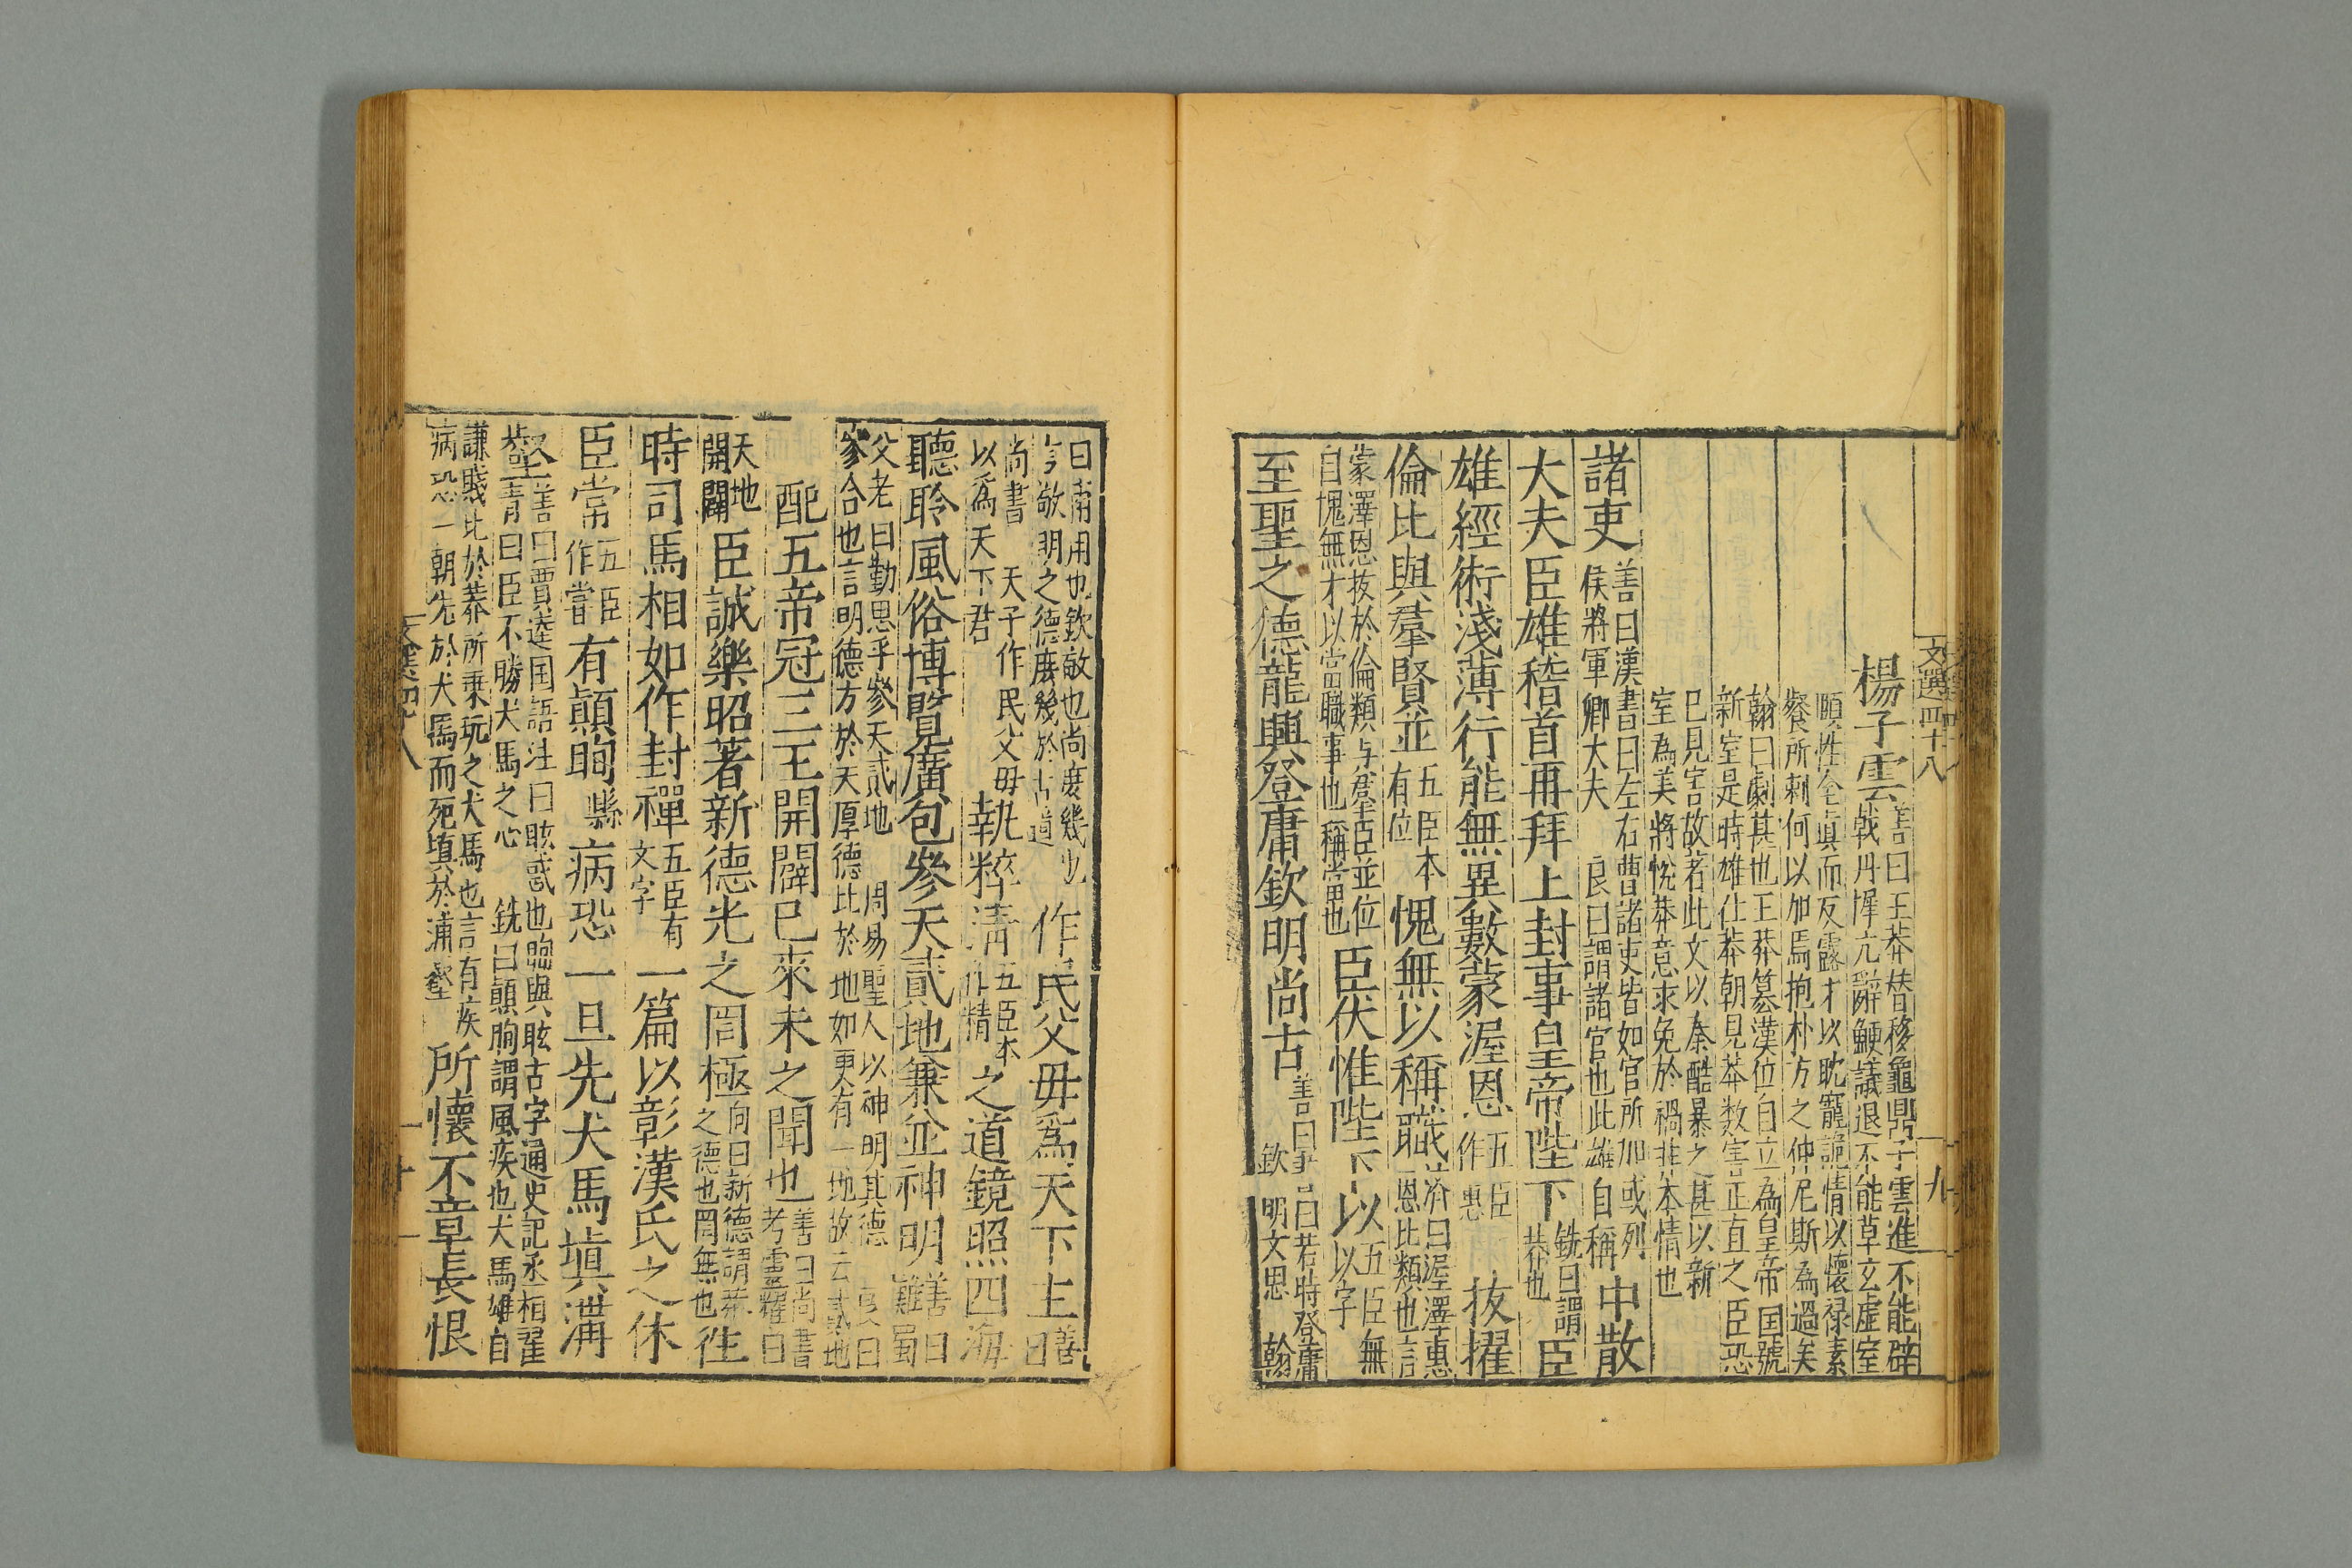 文選四十八
九
楊子雲善曰王莽替移龜鼎子雲進不能辟
戟丹墀亢辭鯁議退不能草玄虛室
頤性全真而反露才以耽寵詭情以懷禄素
餐所刺何以加焉抱朴方之仲尼斯為過矣
翰曰劇甚也王莽篡漢位自立為皇帝国號
新室是時雄仕莽朝見莽数害正直之臣恐
已見害故著此文以秦酷暴之甚以新
室為美將悅莽意求免於禍非本情也
諸吏善曰漢書曰左右曹諸吏皆如官所加或列
侯將軍卿大夫 良曰謂諸官也此雄自稱中散
大夫臣雄稽首再拜上封事皇帝陛下銑曰謂
莽也臣
雄經術淺薄行能無異數蒙渥恩五臣
作惠拔擢
倫比與羣賢並五臣本
有位愧無以稱職濟曰渥澤惠
恩比類也言
蒙澤恩拔於倫類与羣臣並位
自愧無才以當職事也稱當也臣伏惟陛下以五臣無
以字
至聖之德龍興登庸欽明尚古善曰
曰若時登庸
欽明文思 翰
曰庸用也欽敬也尚庶幾也
言敬明之德庶幾於古道作民父毋爲天下主善
曰
尚書 天子作民父毋
以爲天下君執粹清五臣本
作精之道鏡照四海
聽聆風俗博覽廣包參天貳地兼並神明善曰
難蜀
父老曰勤思乎參天貳地 周易聖人以神明其德 良曰
參合也言明德方於天厚德比於地如更有一地故云貳地
配五帝冠三王開闢已來未之聞也善曰尚書
考靈耀曰
天地
開闢臣誠樂昭著新德光之罔極向曰新德謂莽
之德也罔無也徃
時司馬相如作封禪五臣有
文字一篇以彰漢氏之休
臣常五臣
作甞有顛眴縣病恐一旦先犬馬塡溝
壑善曰賈逵国語注曰眩惑也眴與眩古字通史記丞相翟
青曰臣不勝犬馬之心 銑曰顛眴謂風疾也犬馬雄自
謙賤比於莽所乗玩之犬馬也言有疾
病恐一朝先於犬馬而死填於溝壑所懷不章長恨
文選四十八
十